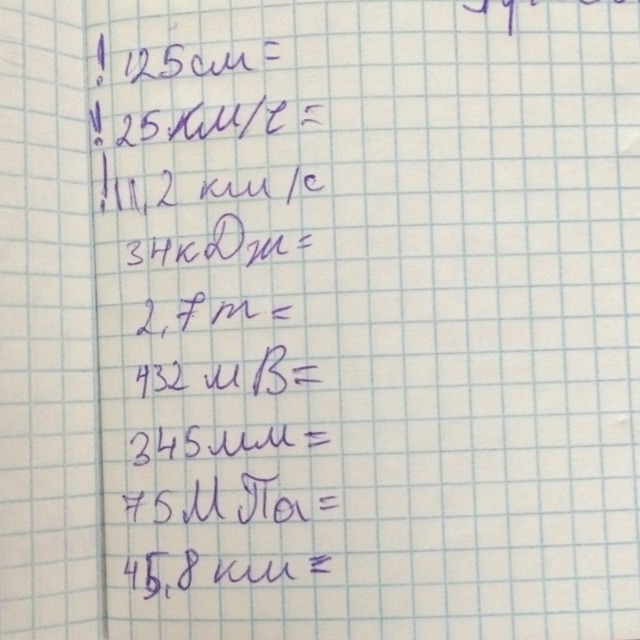 ! 125см =
! 25 км/ч =
! 11,2 км/с
34кДж =
2,7т =
432 мВ =
345мм =
75МПа =
45,8 км =